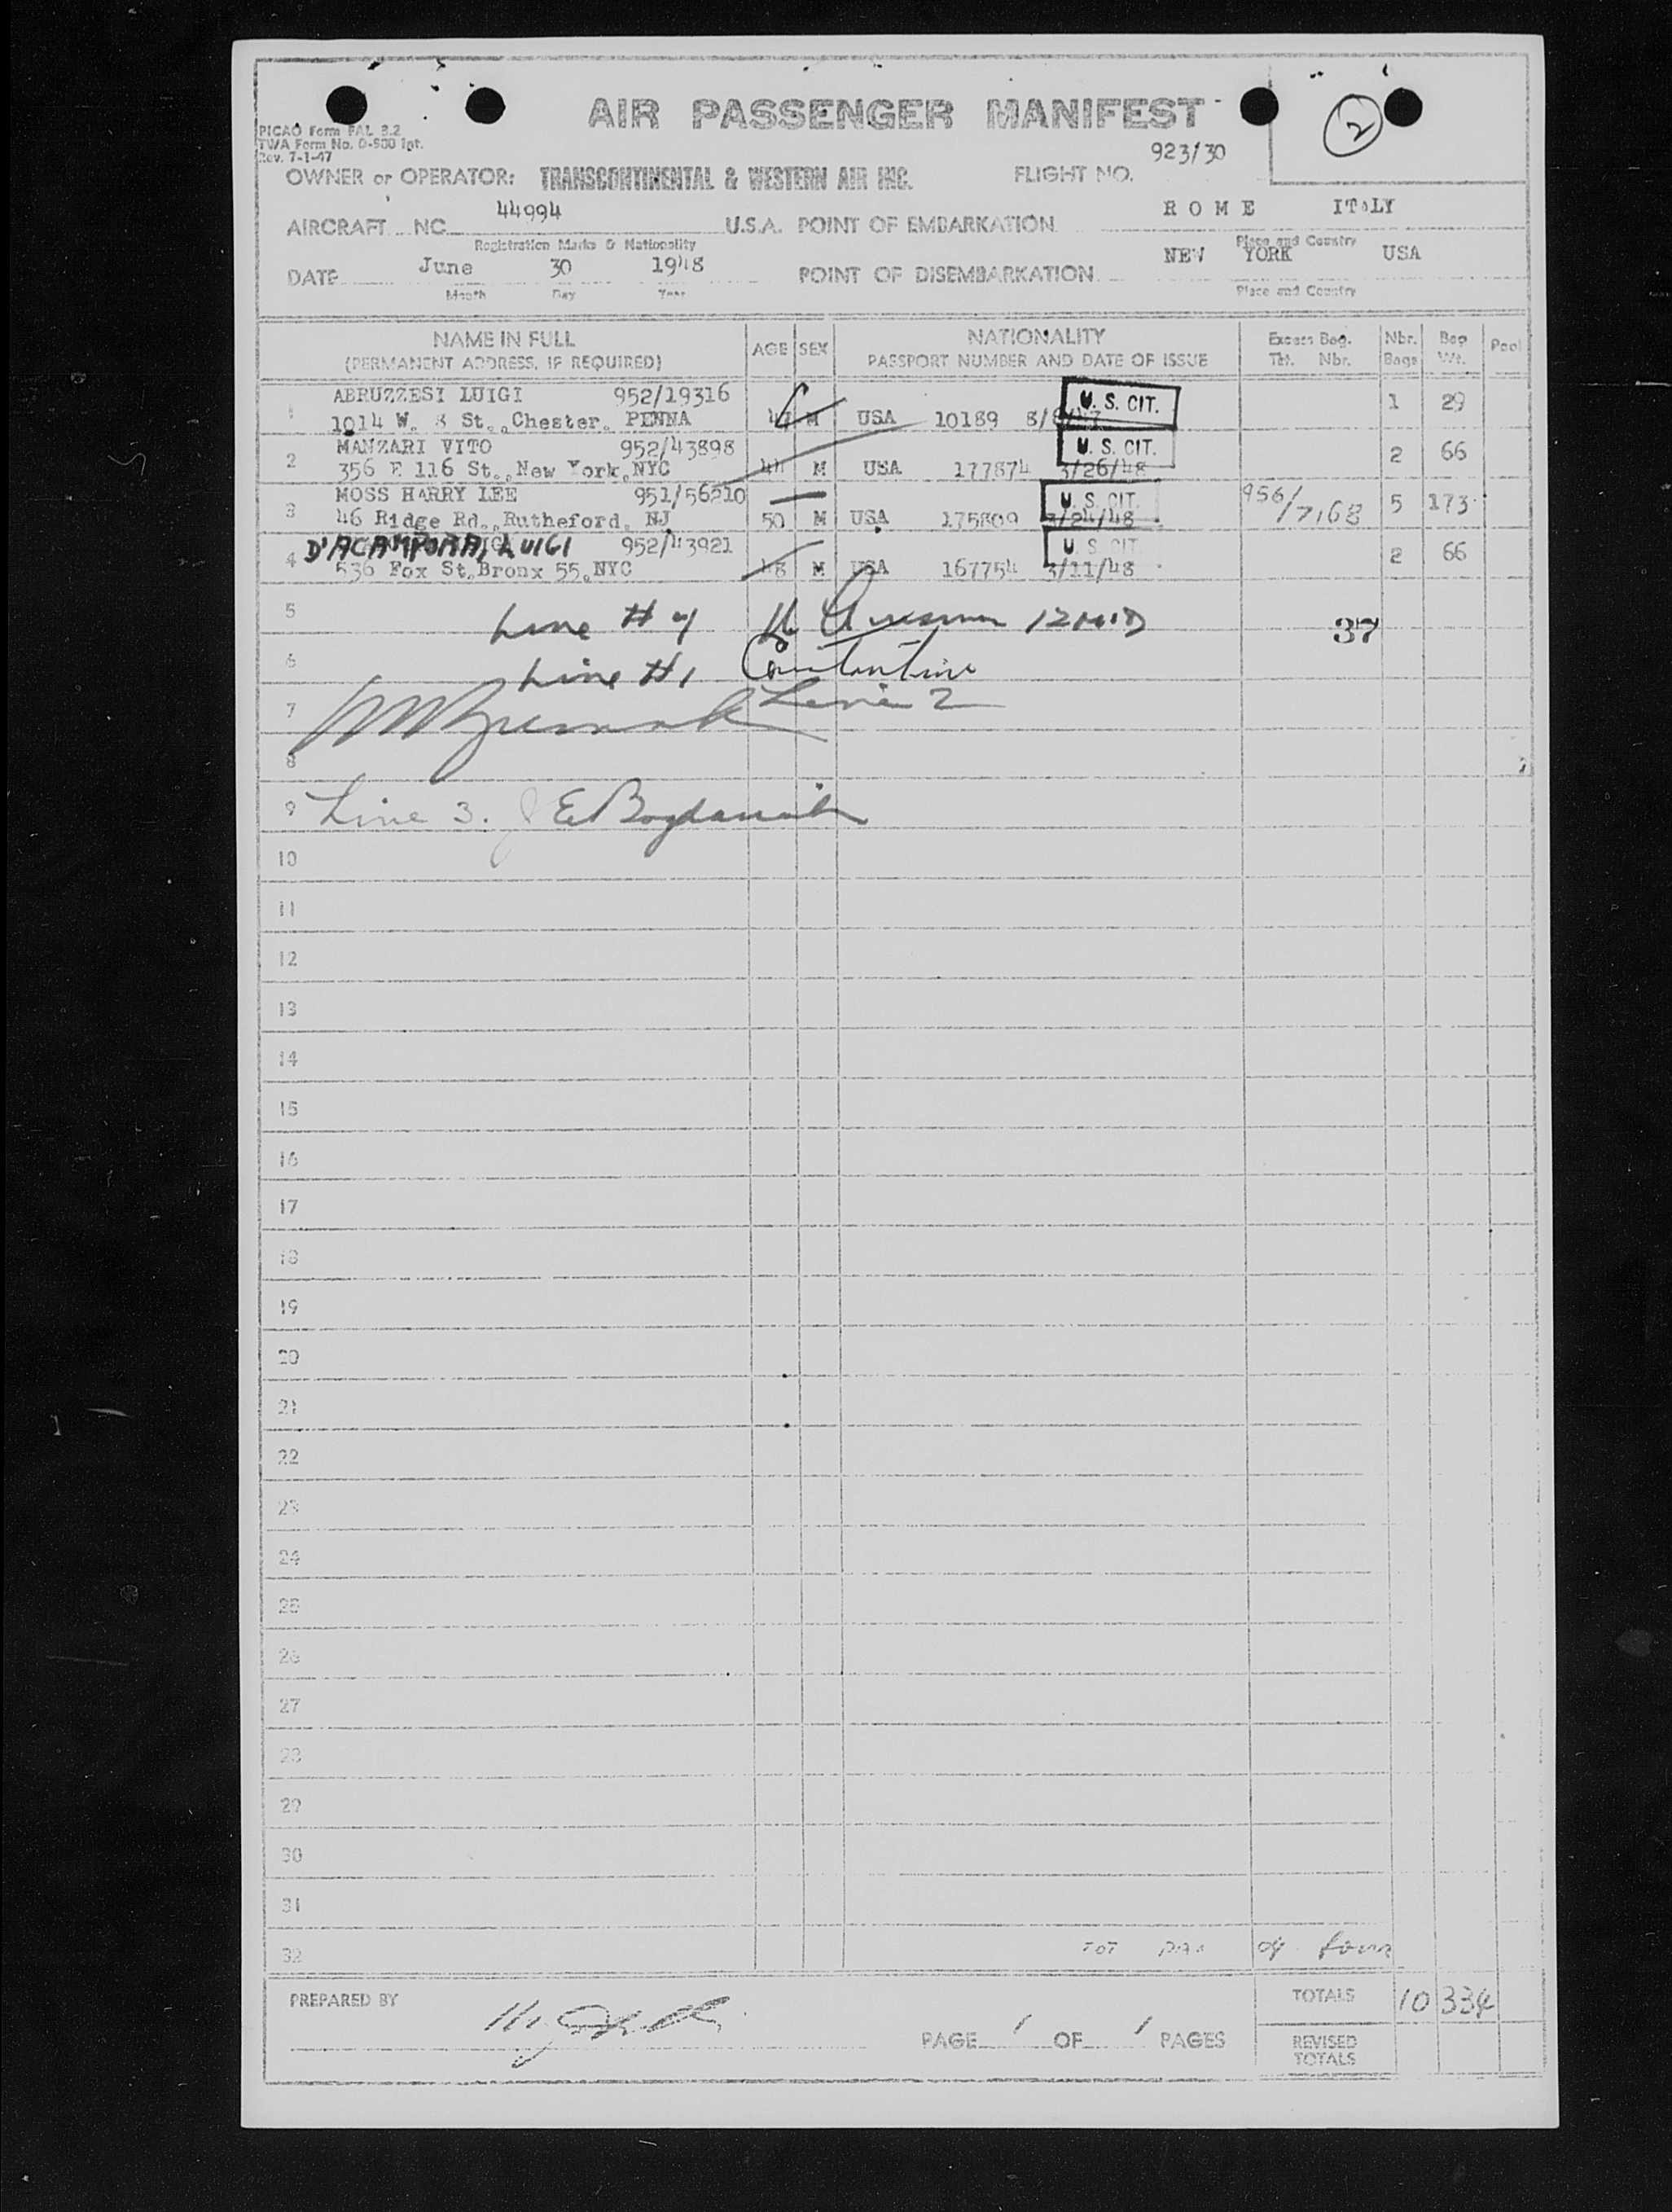 AIR PASSENGER MANIFEST
2
PICAO Form FAL 3.2
TWA Form No. O-900 Int.
Rev. 7-1-47
923/30
OWNER or OPERATOR: TRANSCONTINENTAL & WESTERN AIR INC. FLIGHT NO.
AIRCRAFT NC 44994 U.S.A. POINT OF EMBARKATION R O M E ITALY
Registration Marks & Nationality Place and Country
DATE June 30 1948 POINT OF DISEMBARKATION NEW YORK USA
Month Day Year Place and Country
NAME IN FULL AGE SEX NATIONALITY Excess Bag. Nbr. Bag Pool
(PERMANENT ADDRESS, IF REQUIRED) PASSPORT NUMBER AND DATE OF ISSUE Tkt. Nbr. Bags Wt.
1 ABRUZZESI LUIGI 952/19316 U. S. CIT. 1 29
1014 W. 8 St., Chester, PENNA M USA 10189
2 MANZARI VITO 952/43898 U. S. CIT. 2 66
356 E 116 St., New York, NYC 44 M USA 177874 3/26/48
3 MOSS HARRY LEE 951/56210 U. S. CIT. 956/7168 5 173
46 Ridge Rd., Rutheford, NJ 50 M USA 175809 3/24/48
4 D'ACAMPORA, LUIGI 952/43921 U. S. CIT. 2 66
636 Fox St. Bronx 55, NYC 48 M USA 167754 3/11/48
5 Line # 4 37
6 Line #1 Constantine
7 Line 2
8
9 Line 3.
10
11
12
13
14
15
16
17
18
19
20
21
22
23
24
25
26
27
28
29
30
31
32 TOT PAX of four
PREPARED BY TOTALS 10 334
PAGE 1 OF 1 PAGES REVISED TOTALS